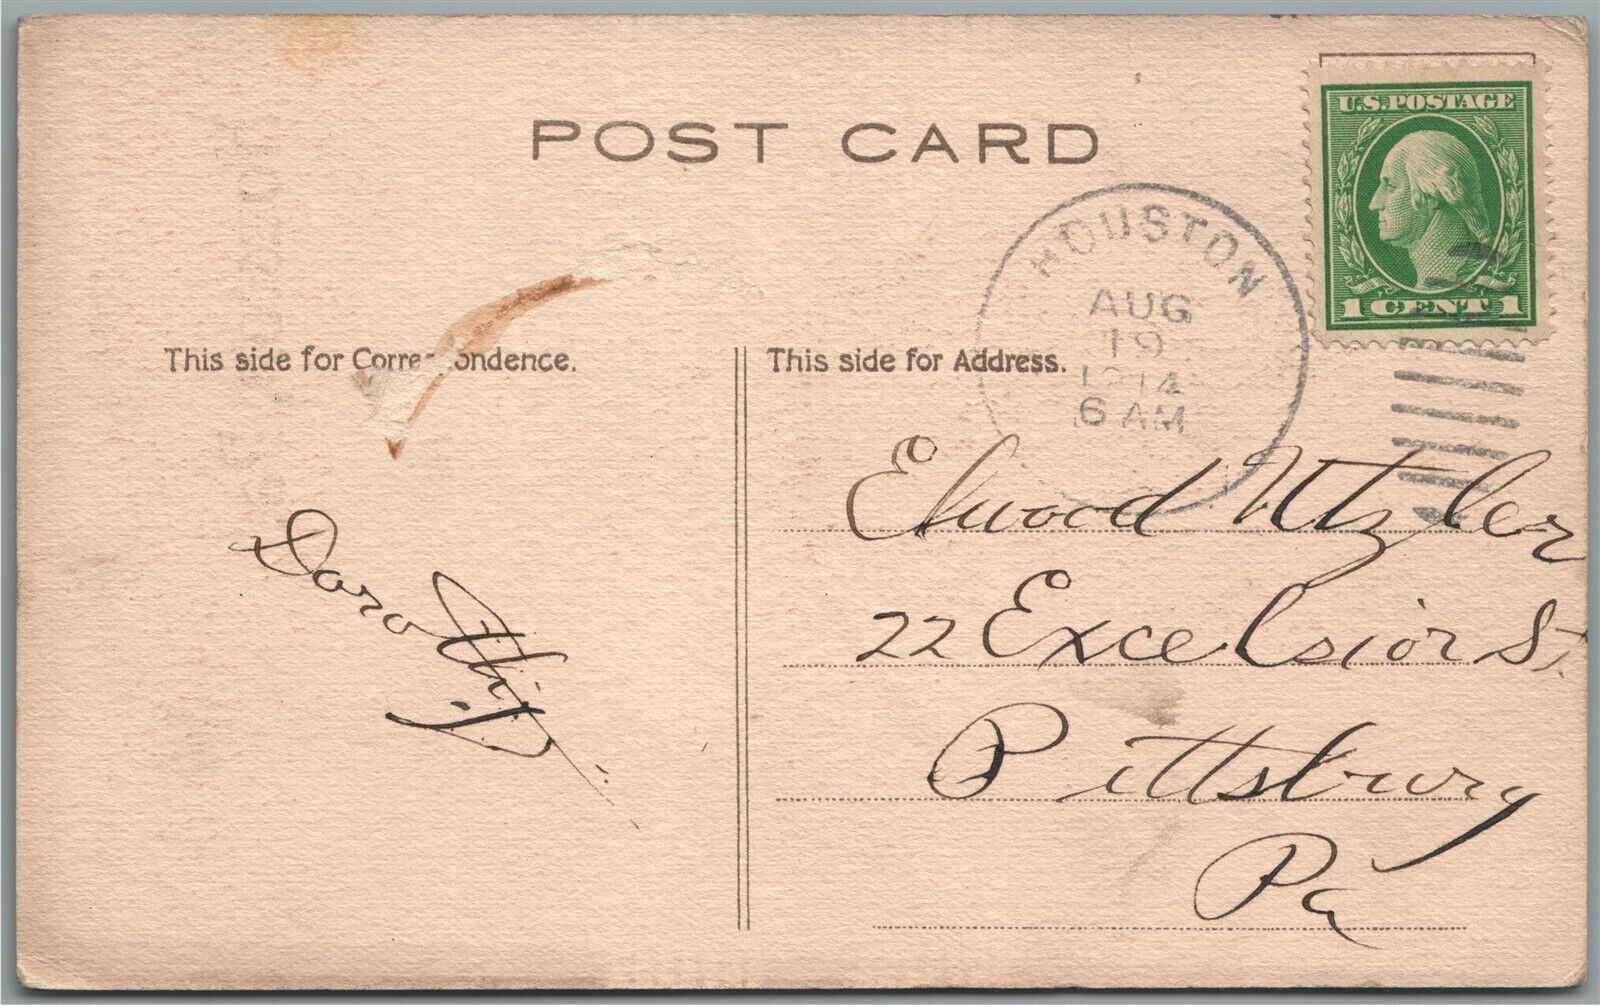 POST CARD
U.S. POSTAGE
1 CENT 1
HOUSTON
AUG
19
1914
6 AM
This side for Correspondence.
This side for Address.
Elwood Utzler
22 Excelsior St.
Pittsburg
Pa
Dorothy